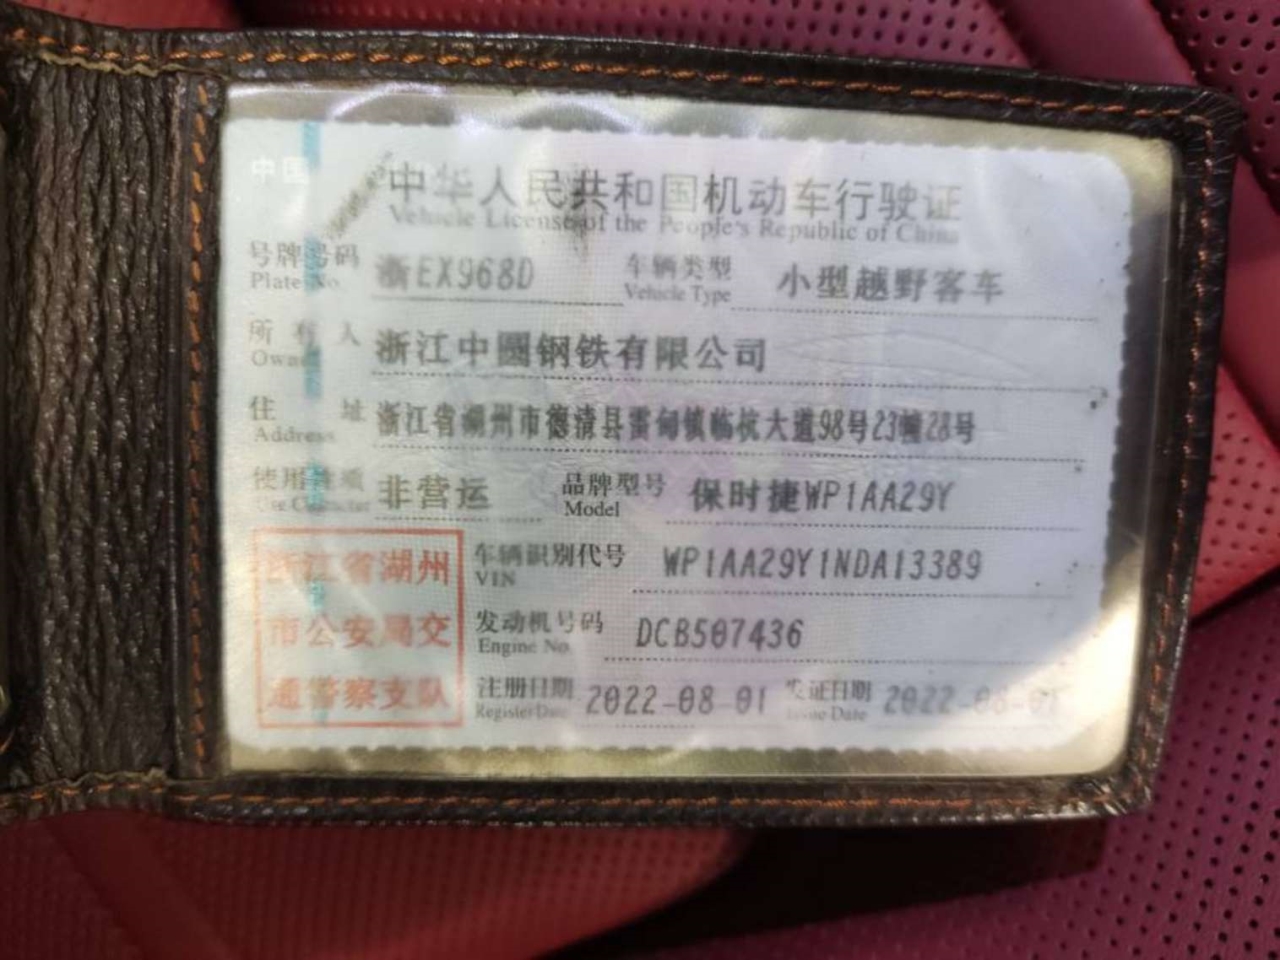 中国
中华人民共和国机动车行驶证
Vehicle License of the People's Republic of China
号牌号码 浙EX968D 车辆类型 小型越野客车
Plate No. Vehicle Type
所有人 浙江中圆钢铁有限公司
Owner
住址 浙江省湖州市德清县雷甸镇临杭大道98号23幢28号
Address
使用性质 非营运 品牌型号 保时捷WP1AA29Y
Use Character Model
浙江省湖州 车辆识别代号 WP1AA29Y1NDA13389
VIN
市公安局交 发动机号码 DCB507436
Engine No.
通警察支队 注册日期 2022-08-01 发证日期 2022-08-01
Register Date Issue Date